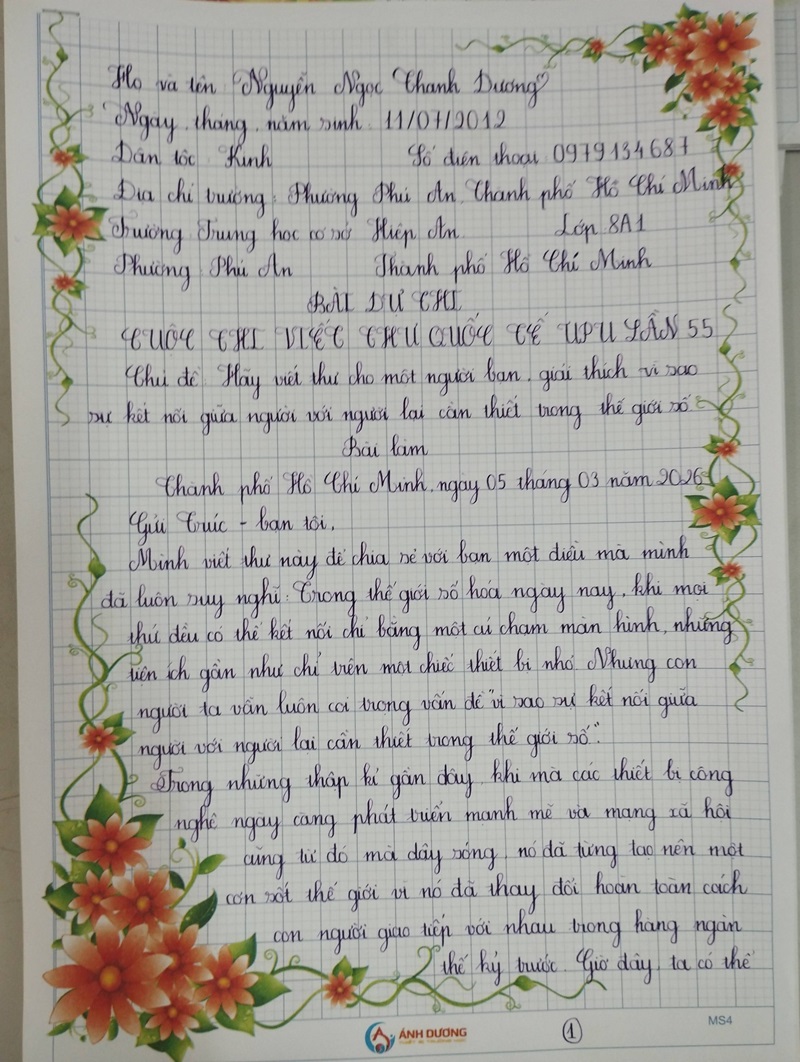 Họ và tên Nguyễn Ngọc Thanh Dương
Ngày, tháng, năm sinh 11/07/2012
Dân tộc Kinh Số điện thoại 0979134687
Địa chỉ trường: Phường Phú An, Thanh phố Hồ Chí Minh
Trường Trung học cơ sở Hiệp An Lớp 8A1
Phường Phú An Thành phố Hồ Chí Minh
BÀI DỰ THI
CUỘC THI VIẾT THƯ QUỐC TẾ UPU LẦN 55
Chủ đề Hãy viết thư cho một người bạn, giải thích vì sao
sự kết nối giữa người với người lại cần thiết trong thế giới số
Bài làm
Thành phố Hồ Chí Minh, ngày 05 tháng 03 năm 2026
Gửi Trúc - bạn tôi,
Mình viết thư này để chia sẻ với bạn một điều mà mình
đã luôn suy nghĩ: Trong thế giới số hóa ngày nay, khi mọi
thứ đều có thể kết nối chỉ bằng một cú chạm màn hình, những
tiện ích gần như chỉ trên một chiếc thiết bị nhỏ. Nhưng con
người ta vẫn luôn coi trọng vấn đề "vì sao sự kết nối giữa
người với người lại cần thiết trong thế giới số".
Trong những thập kỉ gần đây, khi mà các thiết bị công
nghệ ngày càng phát triển mạnh mẽ và mạng xã hội
cũng từ đó mà dậy sóng, nó đã từng tạo nên một
cơn sốt thế giới vì nó đã thay đổi hoàn toàn cách
con người giao tiếp với nhau trong hàng ngàn
thế kỷ trước. Giờ đây, ta có thể
ÁNH DƯƠNG
1
MS4